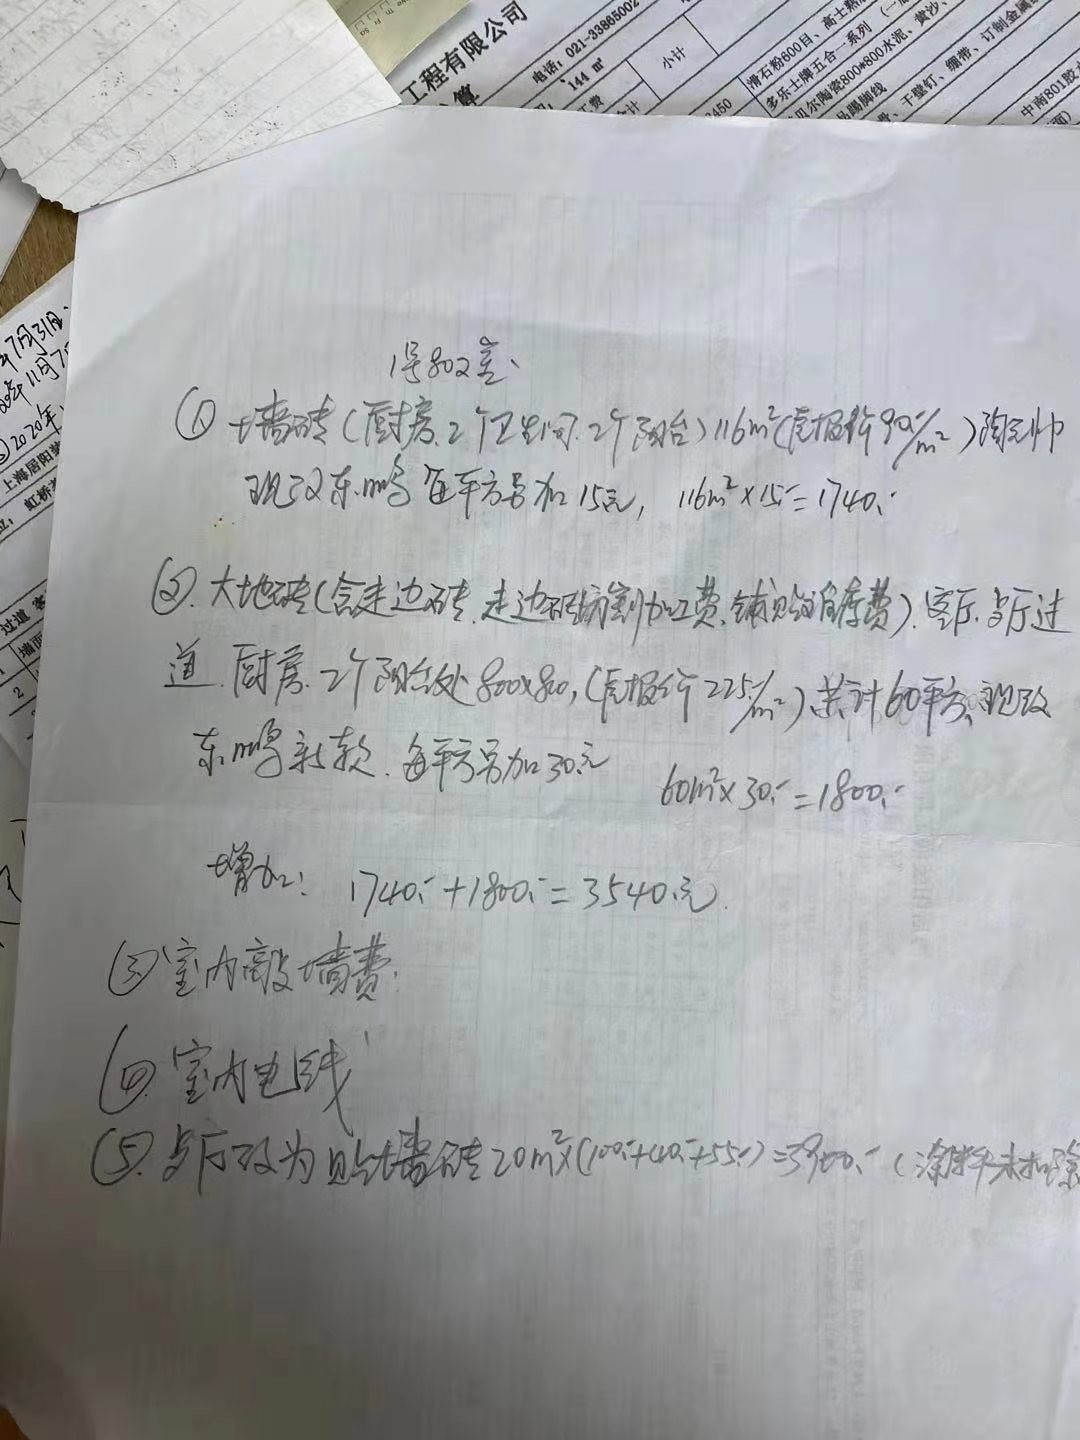 工程有限公司
算
电话：021-33865002
144 m²
工费
小计
合计
2450
滑石粉600目、高士熟
多乐士牌五合一系列
贝尔陶瓷800*800水泥、黄沙、
踢脚线
、干壁钉、绷带、订制金属
中南801胶
7月31日
11月7
2020年
上海居阳
虹桥
过道 客
墙面
2
1号802室、
① 墙砖(厨房、2个卫生间、2个阳台)116m²(原报价90.-/m²)陶元帅
现改东鹏每平方另加15元, 116m²×15.-=1740.-
②. 大地砖(含走边砖、走边砖切割加工费、铺贴损耗费).客厅.与厅过
道.厨房.2个阳台处800×800,(原报价225.-/m²)共计60平方、现改
东鹏新款.每平方另加30元
60m²×30.-=1800.-
增加: 1740.-+1800.-=3540.元.
③ 室内敲墙费.
④ 室内电线
⑤. 与厅改为贴墙砖20m²×(100.-+40.-+55.-)=3900.-(涂料未扣除